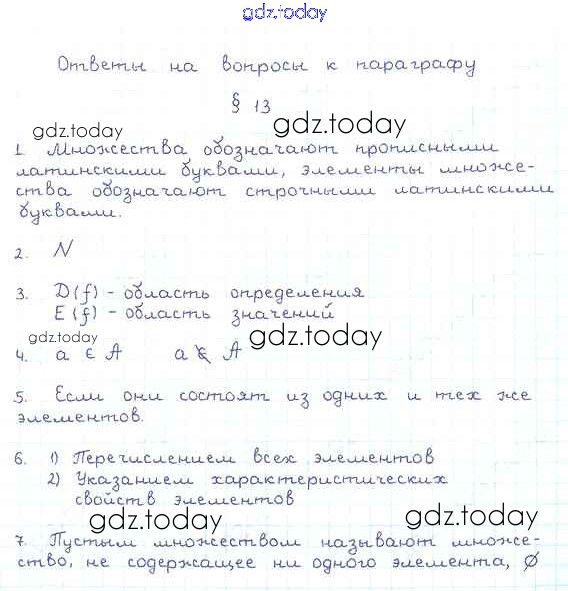 gdz.today
Ответы на вопросы к параграфу
§ 13
gdz.today gdz.today
1. Множества обозначают прописными
латинскими буквами, элементы множе-
ства обозначают строчными латинскими
буквами.
2. N
3. D(f) - область определения
E(f) - область значений
gdz.today gdz.today
4. a ∈ A a ∉ A
5. Если они состоят из одних и тех же
элементов.
6. 1) Перечислением всех элементов
2) Указанием характеристических
свойств элементов
gdz.today gdz.today
7. Пустым множеством называют множе-
ство, не содержащее ни одного элемента, ∅